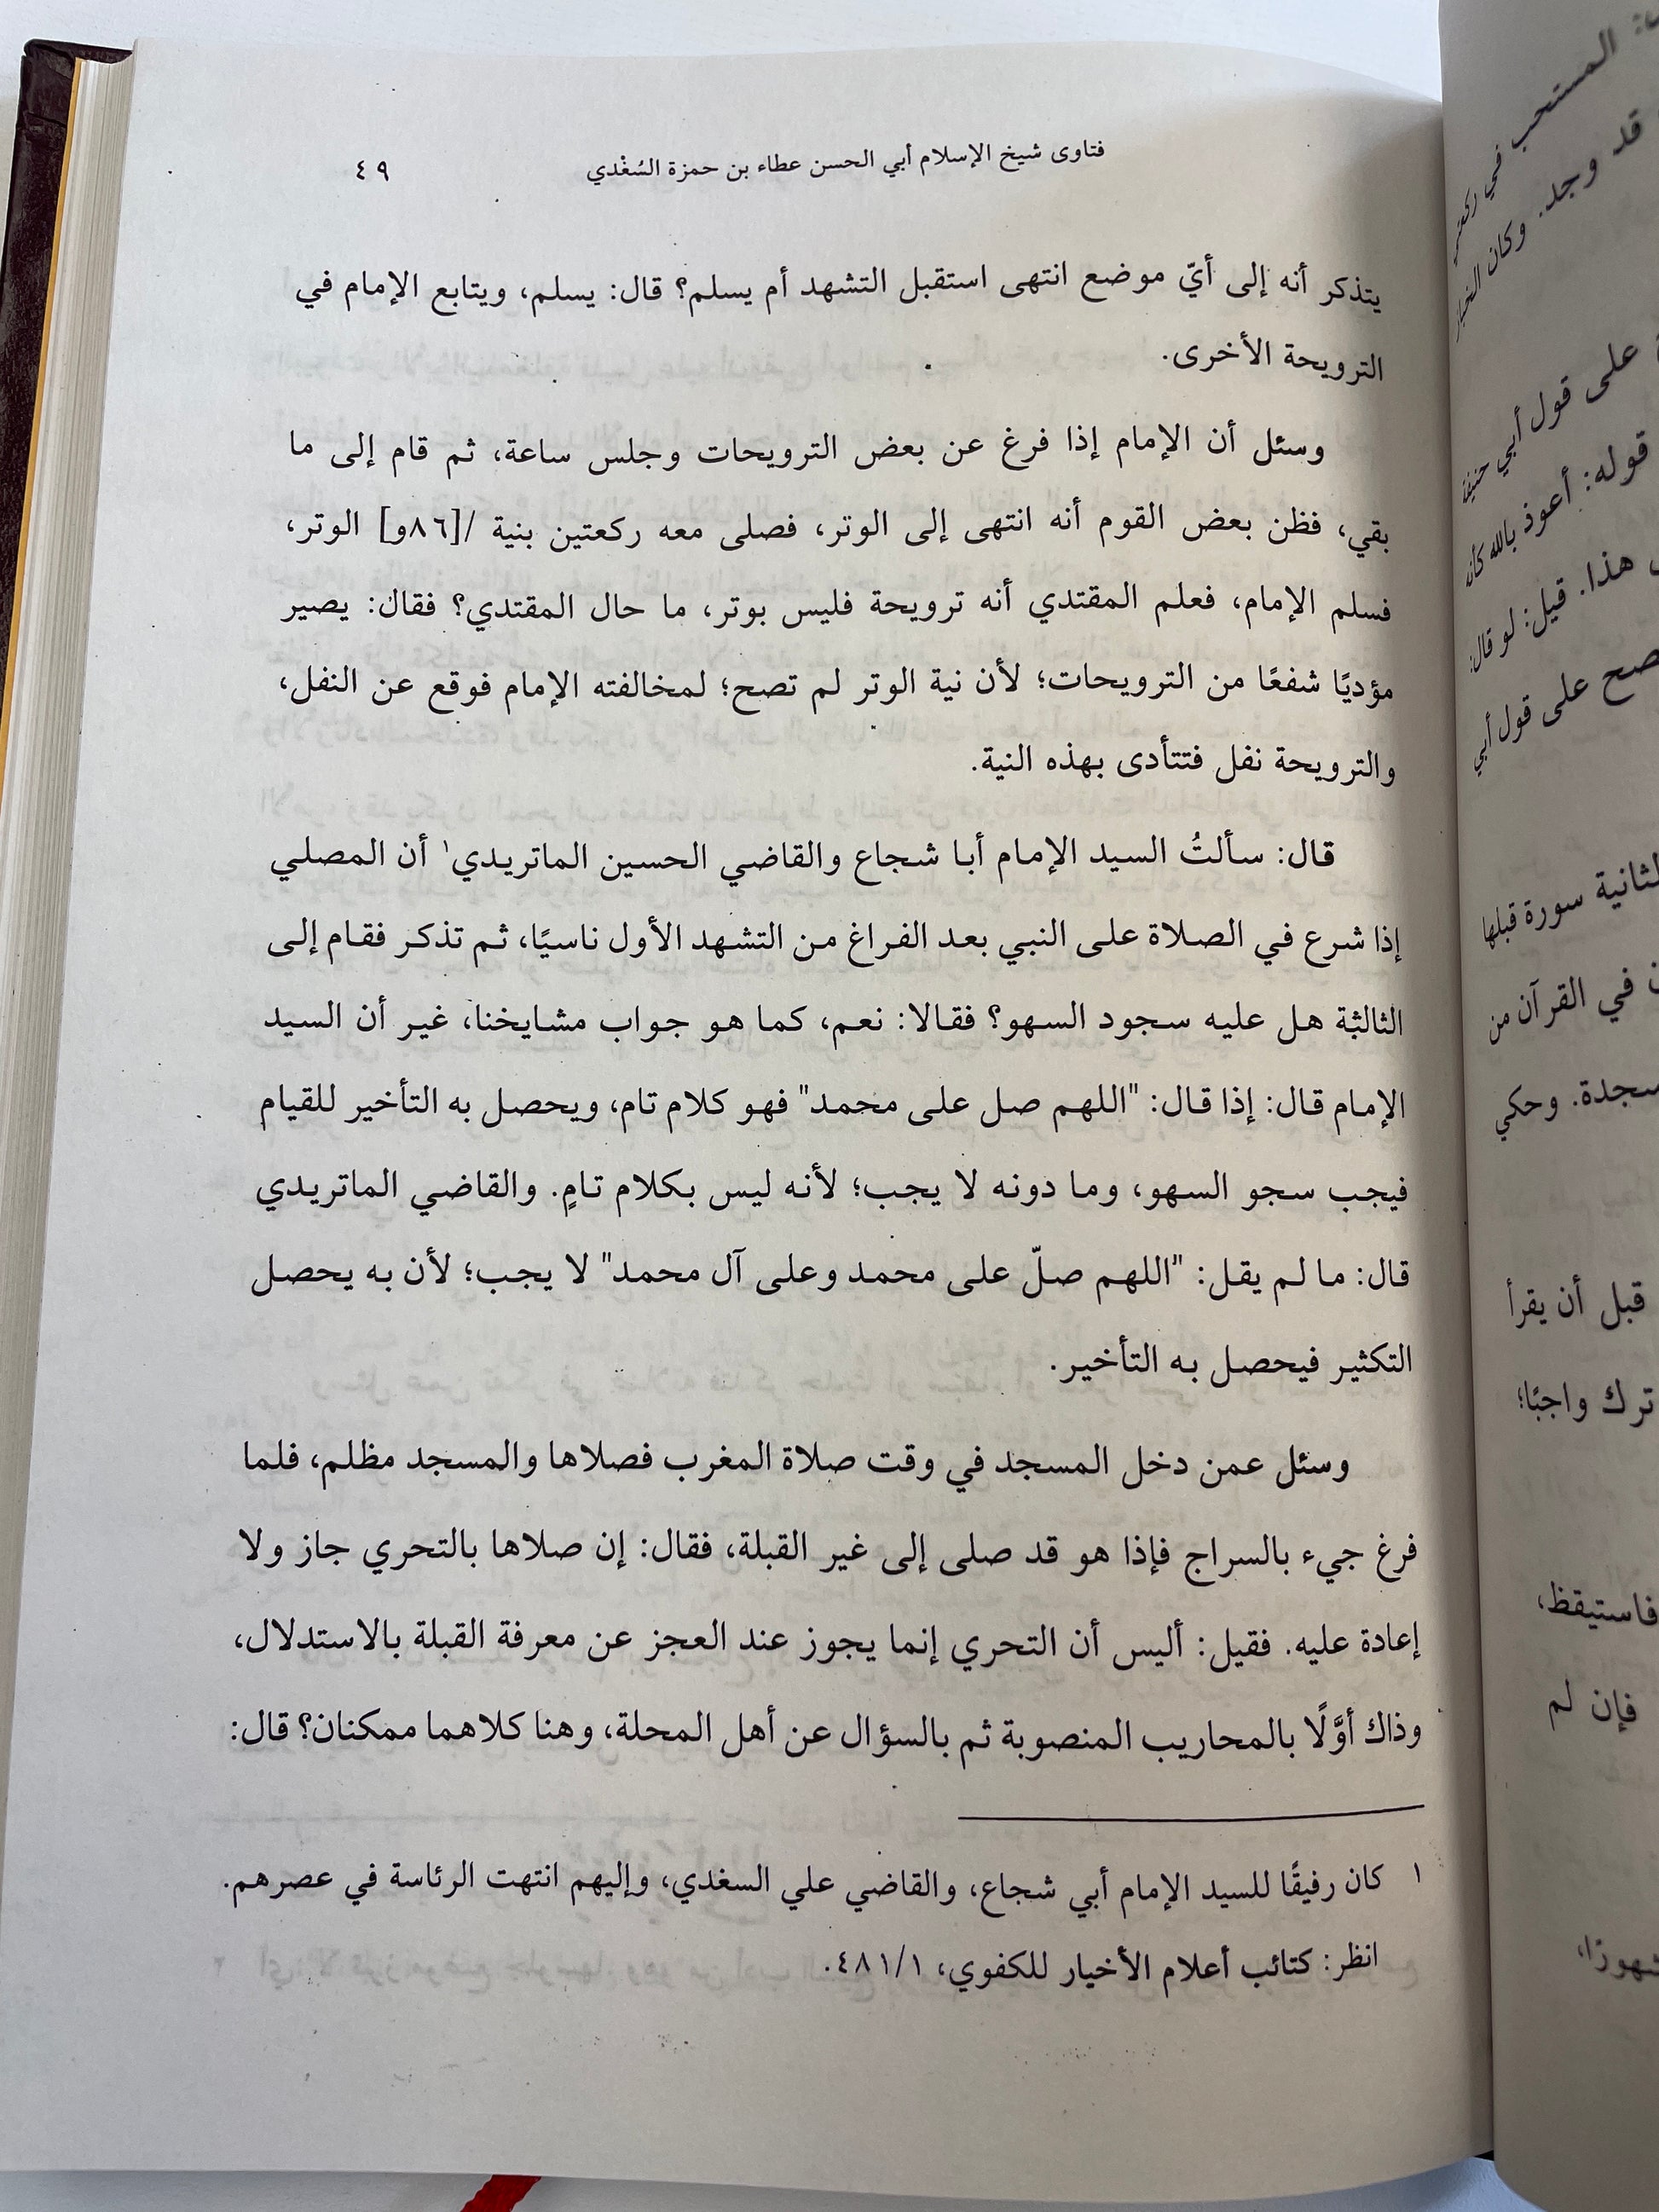 فتاوى شيخ الإسلام أبي الحسن عطاء بن حمزة السُغْدي
٤٩
يتذكر أنه إلى أيّ موضع انتهى استقبل التشهد أم يسلم؟ قال: يسلم، ويتابع الإمام في
الترويحة الأخرى.
وسئل أن الإمام إذا فرغ عن بعض الترويحات وجلس ساعة، ثم قام إلى ما
بقي، فظن بعض القوم أنه انتهى إلى الوتر، فصلى معه ركعتين بنية /[٨٦و] الوتر،
فسلم الإمام، فعلم المقتدي أنه ترويحة فليس بوتر، ما حال المقتدي؟ فقال: يصير
مؤديًا شفعًا من الترويحات؛ لأن نية الوتر لم تصح؛ لمخالفته الإمام فوقع عن النفل،
والترويحة نفل فتتأدى بهذه النية.
قال: سألتُ السيد الإمام أبا شجاع والقاضي الحسين الماتريدي١ أن المصلي
إذا شرع في الصلاة على النبي بعد الفراغ من التشهد الأول ناسيًا، ثم تذكر فقام إلى
الثالثة هل عليه سجود السهو؟ فقالا: نعم، كما هو جواب مشايخنا، غير أن السيد
الإمام قال: إذا قال: "اللهم صل على محمد" فهو كلام تام، ويحصل به التأخير للقيام
فيجب سجو السهو، وما دونه لا يجب؛ لأنه ليس بكلام تامٍ. والقاضي الماتريدي
قال: ما لم يقل: "اللهم صلّ على محمد وعلى آل محمد" لا يجب؛ لأن به يحصل
التكثير فيحصل به التأخير.
وسئل عمن دخل المسجد في وقت صلاة المغرب فصلاها والمسجد مظلم، فلما
فرغ جيء بالسراج فإذا هو قد صلى إلى غير القبلة، فقال: إن صلاها بالتحري جاز ولا
إعادة عليه. فقيل: أليس أن التحري إنما يجوز عند العجز عن معرفة القبلة بالاستدلال،
وذاك أوَّلًا بالمحاريب المنصوبة ثم بالسؤال عن أهل المحلة، وهنا كلاهما ممكنان؟ قال:
١ كان رفيقًا للسيد الإمام أبي شجاع، والقاضي علي السغدي، وإليهم انتهت الرئاسة في عصرهم.
انظر: كتائب أعلام الأخيار للكفوي، ٤٨١/١.
المستحب في
قد وجد. وكان
على قول أبي حنيفة
قوله: أعوذ بالله كان
هذا. قيل: لو قال:
على قول أبي
سورة قبلها
في القرآن من
وحكي
قبل أن يقرأ
ترك واجبًا؛
فاستيقظ،
فإن لم